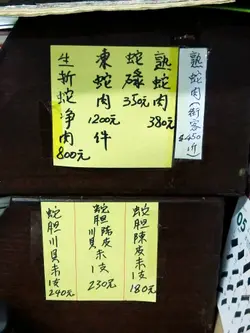 熟蛇肉(街客
$450
1斤)
熟蛇肉
380元
蛇碌
350元
凍蛇肉
1200元
件
生折蛇净肉
800元
蛇胆陳皮末
1支
180元
蛇胆陳皮
川貝末
1支
230元
蛇胆川貝末
1支
240元